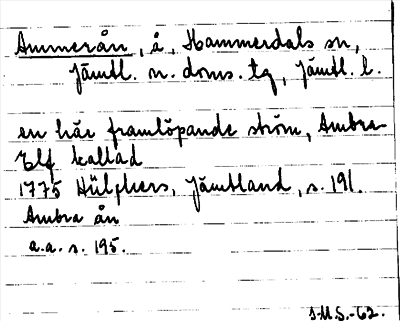 Ammerån, å, Hammerdals sn,
Jämtl. n. doms. tg, Jämtl. l.
en här framlöpande ström, Ambra
Elf kallad
1775 Hülphers, Jämtland, s. 191.
Ambra ån
a.a. s. 195.
J.M.S.-62.